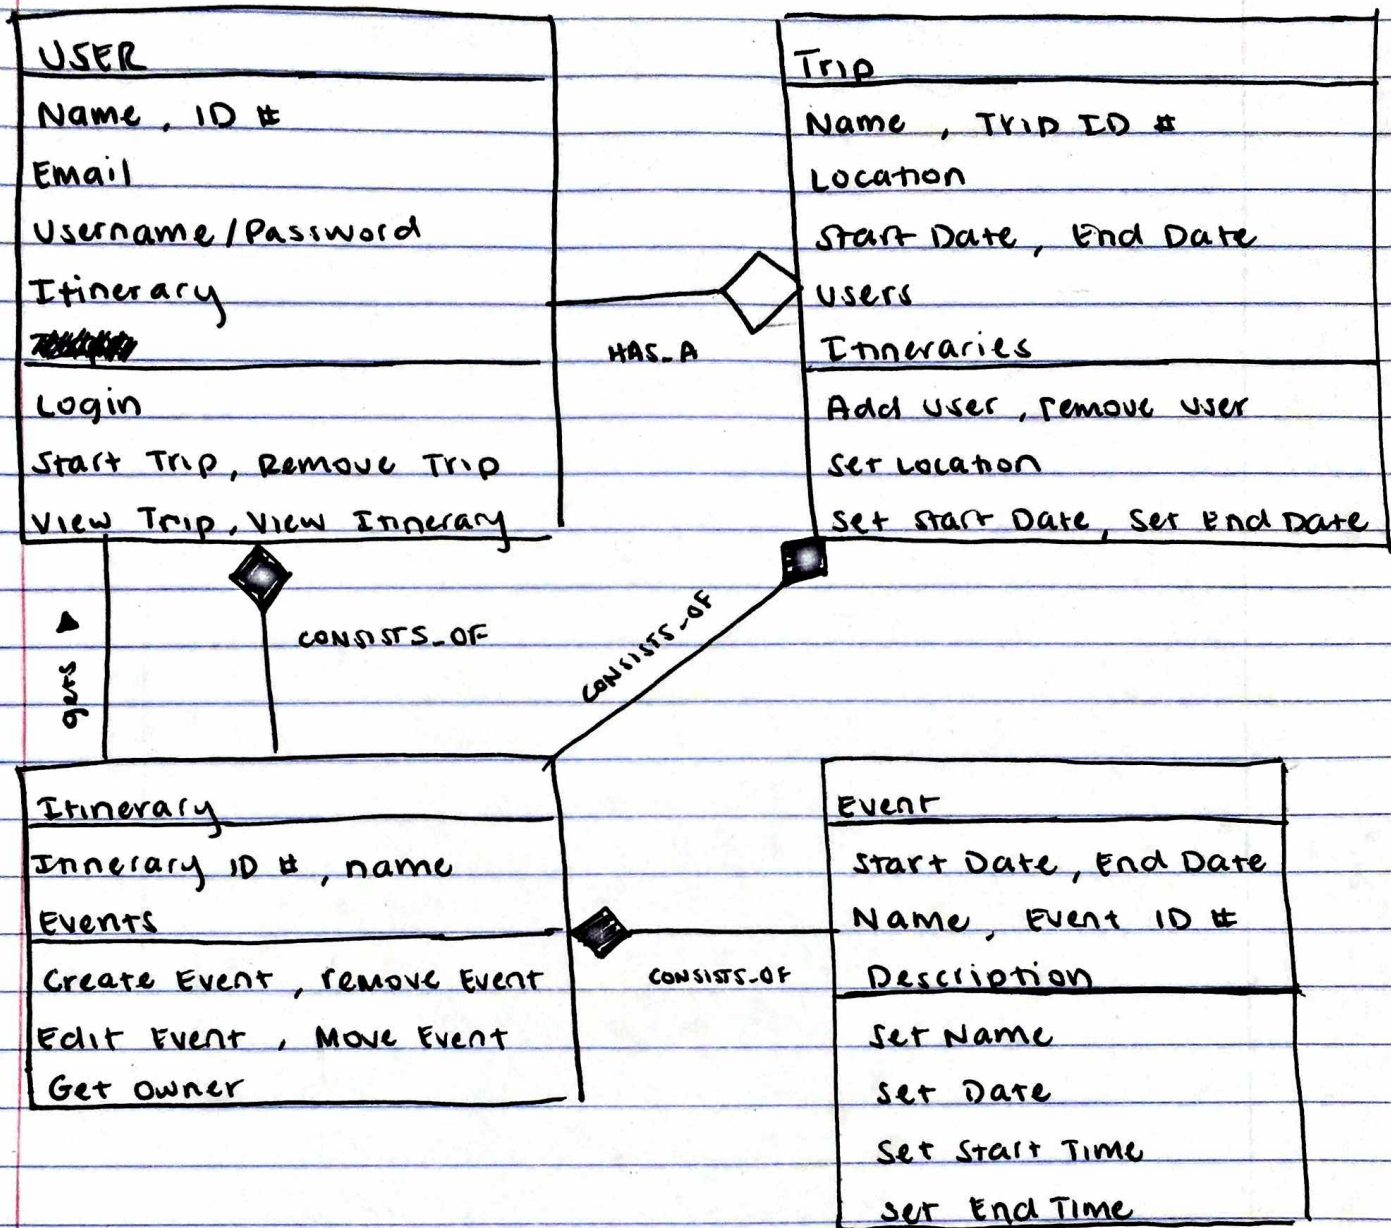 USER
Name, ID #
Email
Username/Password
Itinerary
Login
Start Trip, Remove Trip
View Trip, View Itinerary
Trip
Name, Trip ID #
Location
Start Date, End Date
Users
Itineraries
Add user, remove user
Set Location
Set Start Date, Set End Date
HAS_A
gets ▶
CONSISTS_OF
CONSISTS_OF
Itinerary
Itinerary ID #, name
Events
Create Event, remove Event
Edit Event, Move Event
Get owner
CONSISTS_OF
Event
Start Date, End Date
Name, Event ID #
Description
Set Name
Set Date
Set Start Time
Set End Time